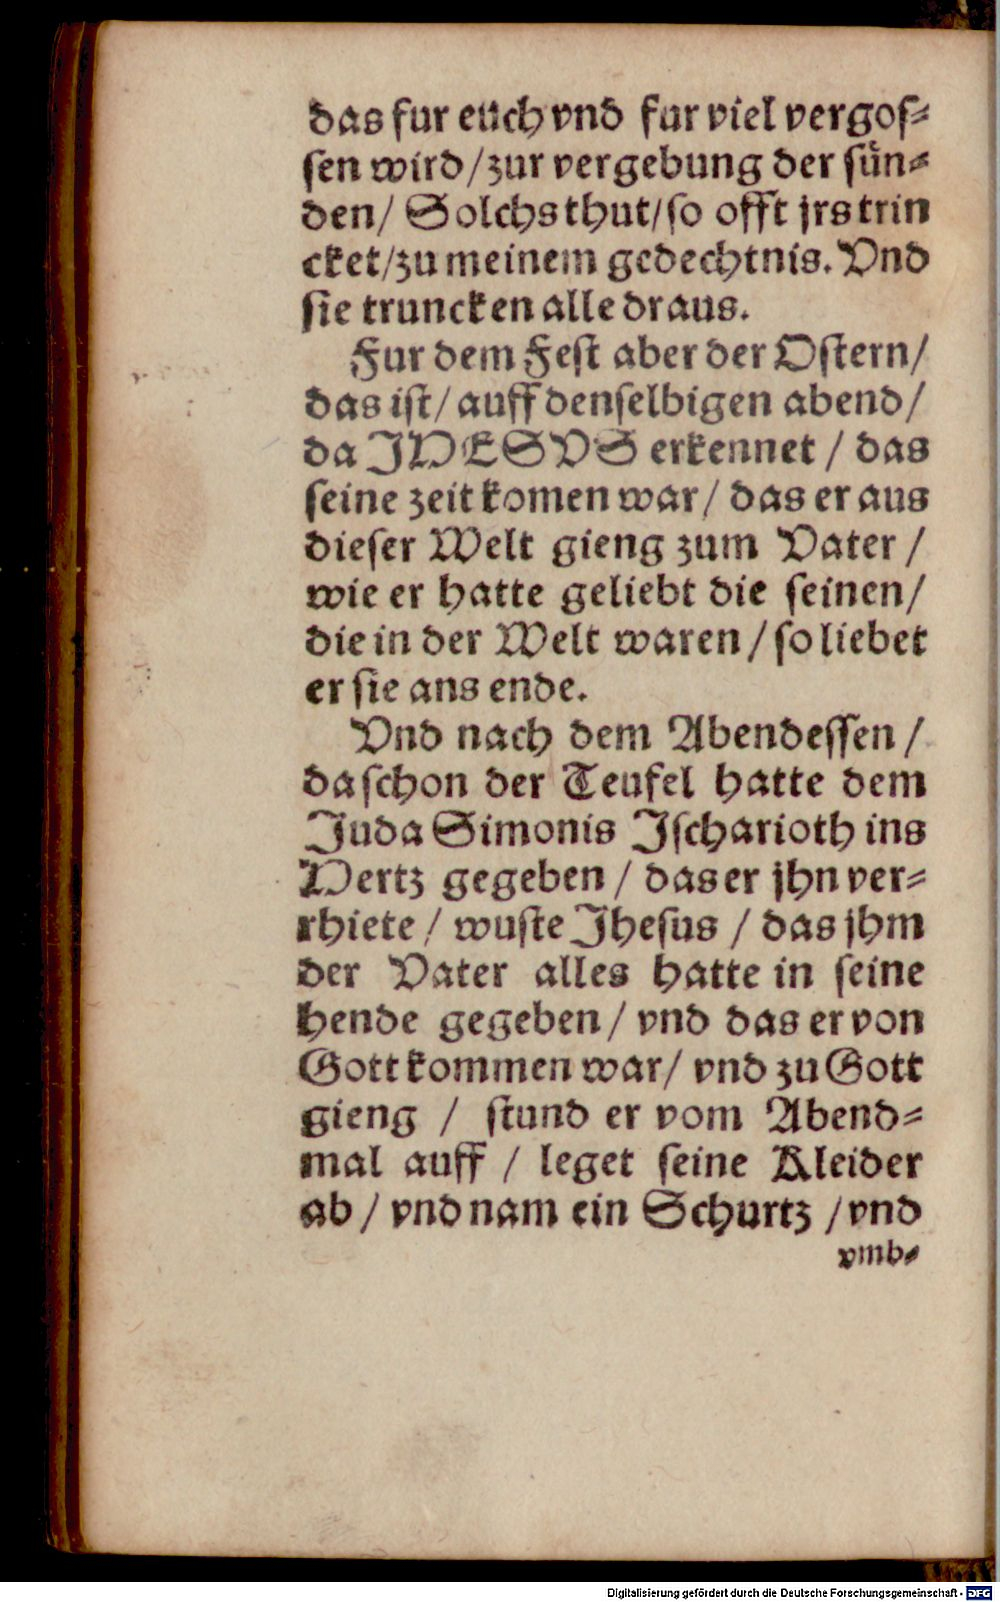 das fur euch vnd fur viel vergoſ⸗
ſen wird/zur vergebung der ſün⸗
den/ Solchs thut/ſo offt jrs trin
cket/zu meinem gedechtnis. Vnd
ſie truncken alle draus.
Fur dem Feſt aber der Oſtern/
das iſt/ auff denſelbigen abend/
da JHESVS erkennet / das
ſeine zeit komen war/ das er aus
dieſer Welt gieng zum Vater /
wie er hatte geliebt die ſeinen/
die in der Welt waren / ſo liebet
er ſie ans ende.
Vnd nach dem Abendeſſen /
da ſchon der Teufel hatte dem
Juda Simonis Jſcharioth ins
Hertz gegeben / das er jhn ver⸗
rhiete / wuſte Jheſus / das jhm
der Vater alles hatte in ſeine
hende gegeben/ vnd das er von
Gott kommen war/ vnd zu Gott
gieng / ſtund er vom Abend⸗
mal auff / leget ſeine Kleider
ab / vnd nam ein Schurtz / vnd
vmb⸗
Digitalisierung gefördert durch die Deutsche Forschungsgemeinschaft - DFG